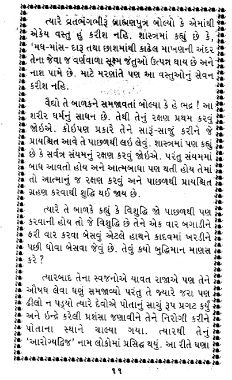 ત્યારે વ્રતભંગભીરૂ બ્રાહ્મણપુત્ર બોલ્યો કે એમાંથી
એકેય વસ્તુ હું કરીશ નહિ. શાસ્ત્રમાં કહ્યું છે કે,
'મધ-માંસ- દારૂ તથા છાશમાંથી કાઢેલ માખણની અંદર
તેના જેવા જ વર્ણવાળા સૂક્ષ્મ જંતુઓ ઉત્પન્ન થાય છે અને
નાશ પામે છે. માટે મરણાંતે પણ આ વસ્તુઓનું સેવન
કરીશ નહિ.
વૈદ્યો તે બાળકને સમજાવતાં બોલ્યા કે હે ભદ્ર ! આ
શરીર ધર્મનું સાધન છે. તેથી તેનું રક્ષણ પ્રથમ કરવું
જોઇએ. કોઇપણ પ્રકારે તેને સારૂં-સાજું કરીને જે
પ્રાયશ્ચિત આવે તે પાછળથી લઈ લેવું. શાસ્ત્રમાં પણ કહ્યું
છે કે સર્વત્ર સંયમનું રક્ષણ કરવું જોઇએ. પરંતુ સંયમમાં
બાધ આવતો હોય અને આત્મબાધા પણ થતી હોય તેમાં
તો આત્માનું જ રક્ષણ કરવું અને પાછળથી પ્રાયશ્ચિત
ગ્રહણ કરવાથી શુદ્ધિ થઈ જાય છે.
ત્યારે તે બાળકે કહ્યું કે વિશુદ્ધિ જો પાછળથી પણ
કરવાની હોય તો જે વિશુદ્ધિ છે તેને એક વાર બગાડીને
ફરી વાર કરવા બેસવું એટલે હાથને કાદવમાં ખરડીને
પછી ધોવા બેસવા જેવું છે. તેવું કયો બુદ્ધિમાન માણસ
કરે ?
ત્યારબાદ તેના સ્વજનોએ યાવત રાજાએ પણ તેને
ઔષધ લેવા ઘણું સમજાવ્યો પરંતુ તે જ્યારે જરા પણ
ઢીલો ન પડ્યો ત્યારે દેવોએ પોતાનું સાચું રૂપ પ્રગટ કર્યું
અને ઇન્દ્રે કરેલી પ્રશંસા જણાવીને તેને નિરોગી કરીને
પોતાના સ્થાને ચાલ્યા ગયા. ત્યારથી તેનું
'આરોગ્યદ્વિજ' નામ લોકોમાં પ્રસિદ્ધ થયું. આ રીતે ઘણા
૧૧